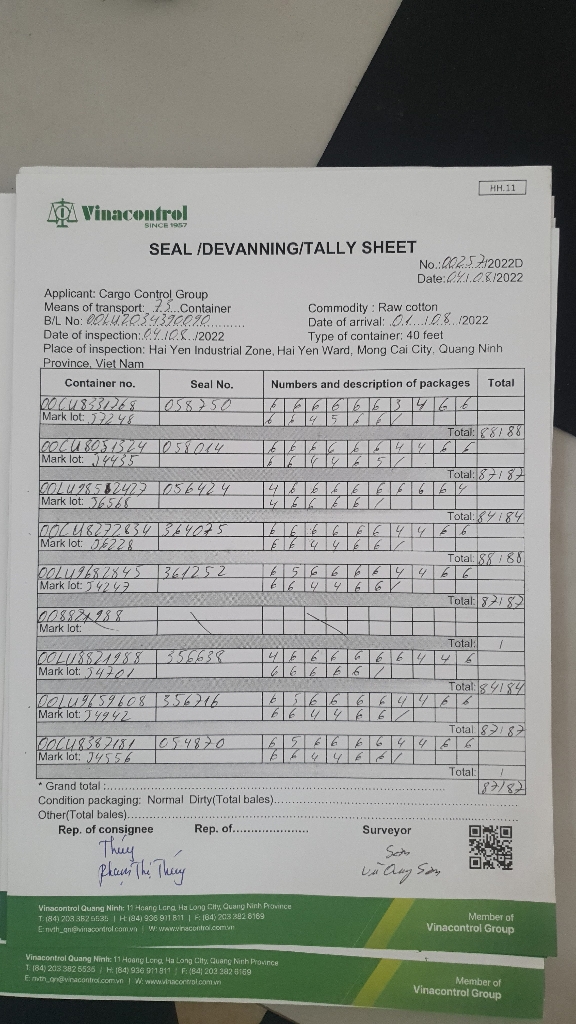 HH.11
Vinacontrol
SINCE 1957
SEAL /DEVANNING/TALLY SHEET
No.:00257/2022D
Date:04/08/2022
Applicant: Cargo Control Group
Means of transport: 73 Container
Commodity : Raw cotton
B/L No:
Date of arrival: 04/08/2022
Date of inspection: 04/08/2022
Type of container: 40 feet
Place of inspection: Hai Yen Industrial Zone, Hai Yen Ward, Mong Cai City, Quang Ninh
Province, Viet Nam
Container no. Seal No. Numbers and description of packages Total
OOCU8331768 058750 6 6 6 6 6 6 3 4 6 6
Mark lot: J7248 6 6 4 5 6 6 /
Total: 88/88
OOCU8051324 058014 6 6 6 6 6 6 4 4 6 6
Mark lot: J4435 6 6 4 4 6 5 /
Total: 87/87
056424 4 6 6 6 6 6 6 6 6 4
Mark lot: J6568 4 6 6 6 6 /
Total: 84/84
OOCU8272834 364075 6 6 6 6 6 6 4 4 6 6
Mark lot: J6228 6 6 4 4 6 6 /
Total: 88/88
OOLU9682845 361252 6 5 6 6 6 6 4 4 6 6
Mark lot: J4247 6 6 4 4 6 6 /
Total: 87/87
Mark lot:
Total: /
OOLU8821988 356638 4 6 6 6 6 6 6 4 4 6
Mark lot: J4701 6 6 6 6 6 /
Total: 84/84
OOLU9659608 356716 6 5 6 6 6 6 4 4 6 6
Mark lot: J4942 6 6 4 4 6 6 /
Total: 87/87
OOCU8387181 054870 6 5 6 6 6 6 4 4 6 6
Mark lot: J4556 6 6 4 4 6 6 /
Total: /
* Grand total : 87/87
Condition packaging: Normal Dirty(Total bales)
Other(Total bales)
Rep. of consignee Rep. of Surveyor
Thúy Sơn
Phạm Thị Thúy
Vinacontrol Quang Ninh: 11 Hoang Long, Ha Long City, Quang Ninh Province
T: (84) 203 382 5535 | H: (84) 936 911 811 | F: (84) 203 382 6169
E: nvth_qn@vinacontrol.com.vn | W: www.vinacontrol.com.vn
Member of
Vinacontrol Group
Vinacontrol Quang Ninh: 11 Hoang Long, Ha Long City, Quang Ninh Province
T: (84) 203 382 5535 | H: (84) 936 911 811 | F: (84) 203 382 6169
E: nvth_qn@vinacontrol.com.vn | W: www.vinacontrol.com.vn
Member of
Vinacontrol Group